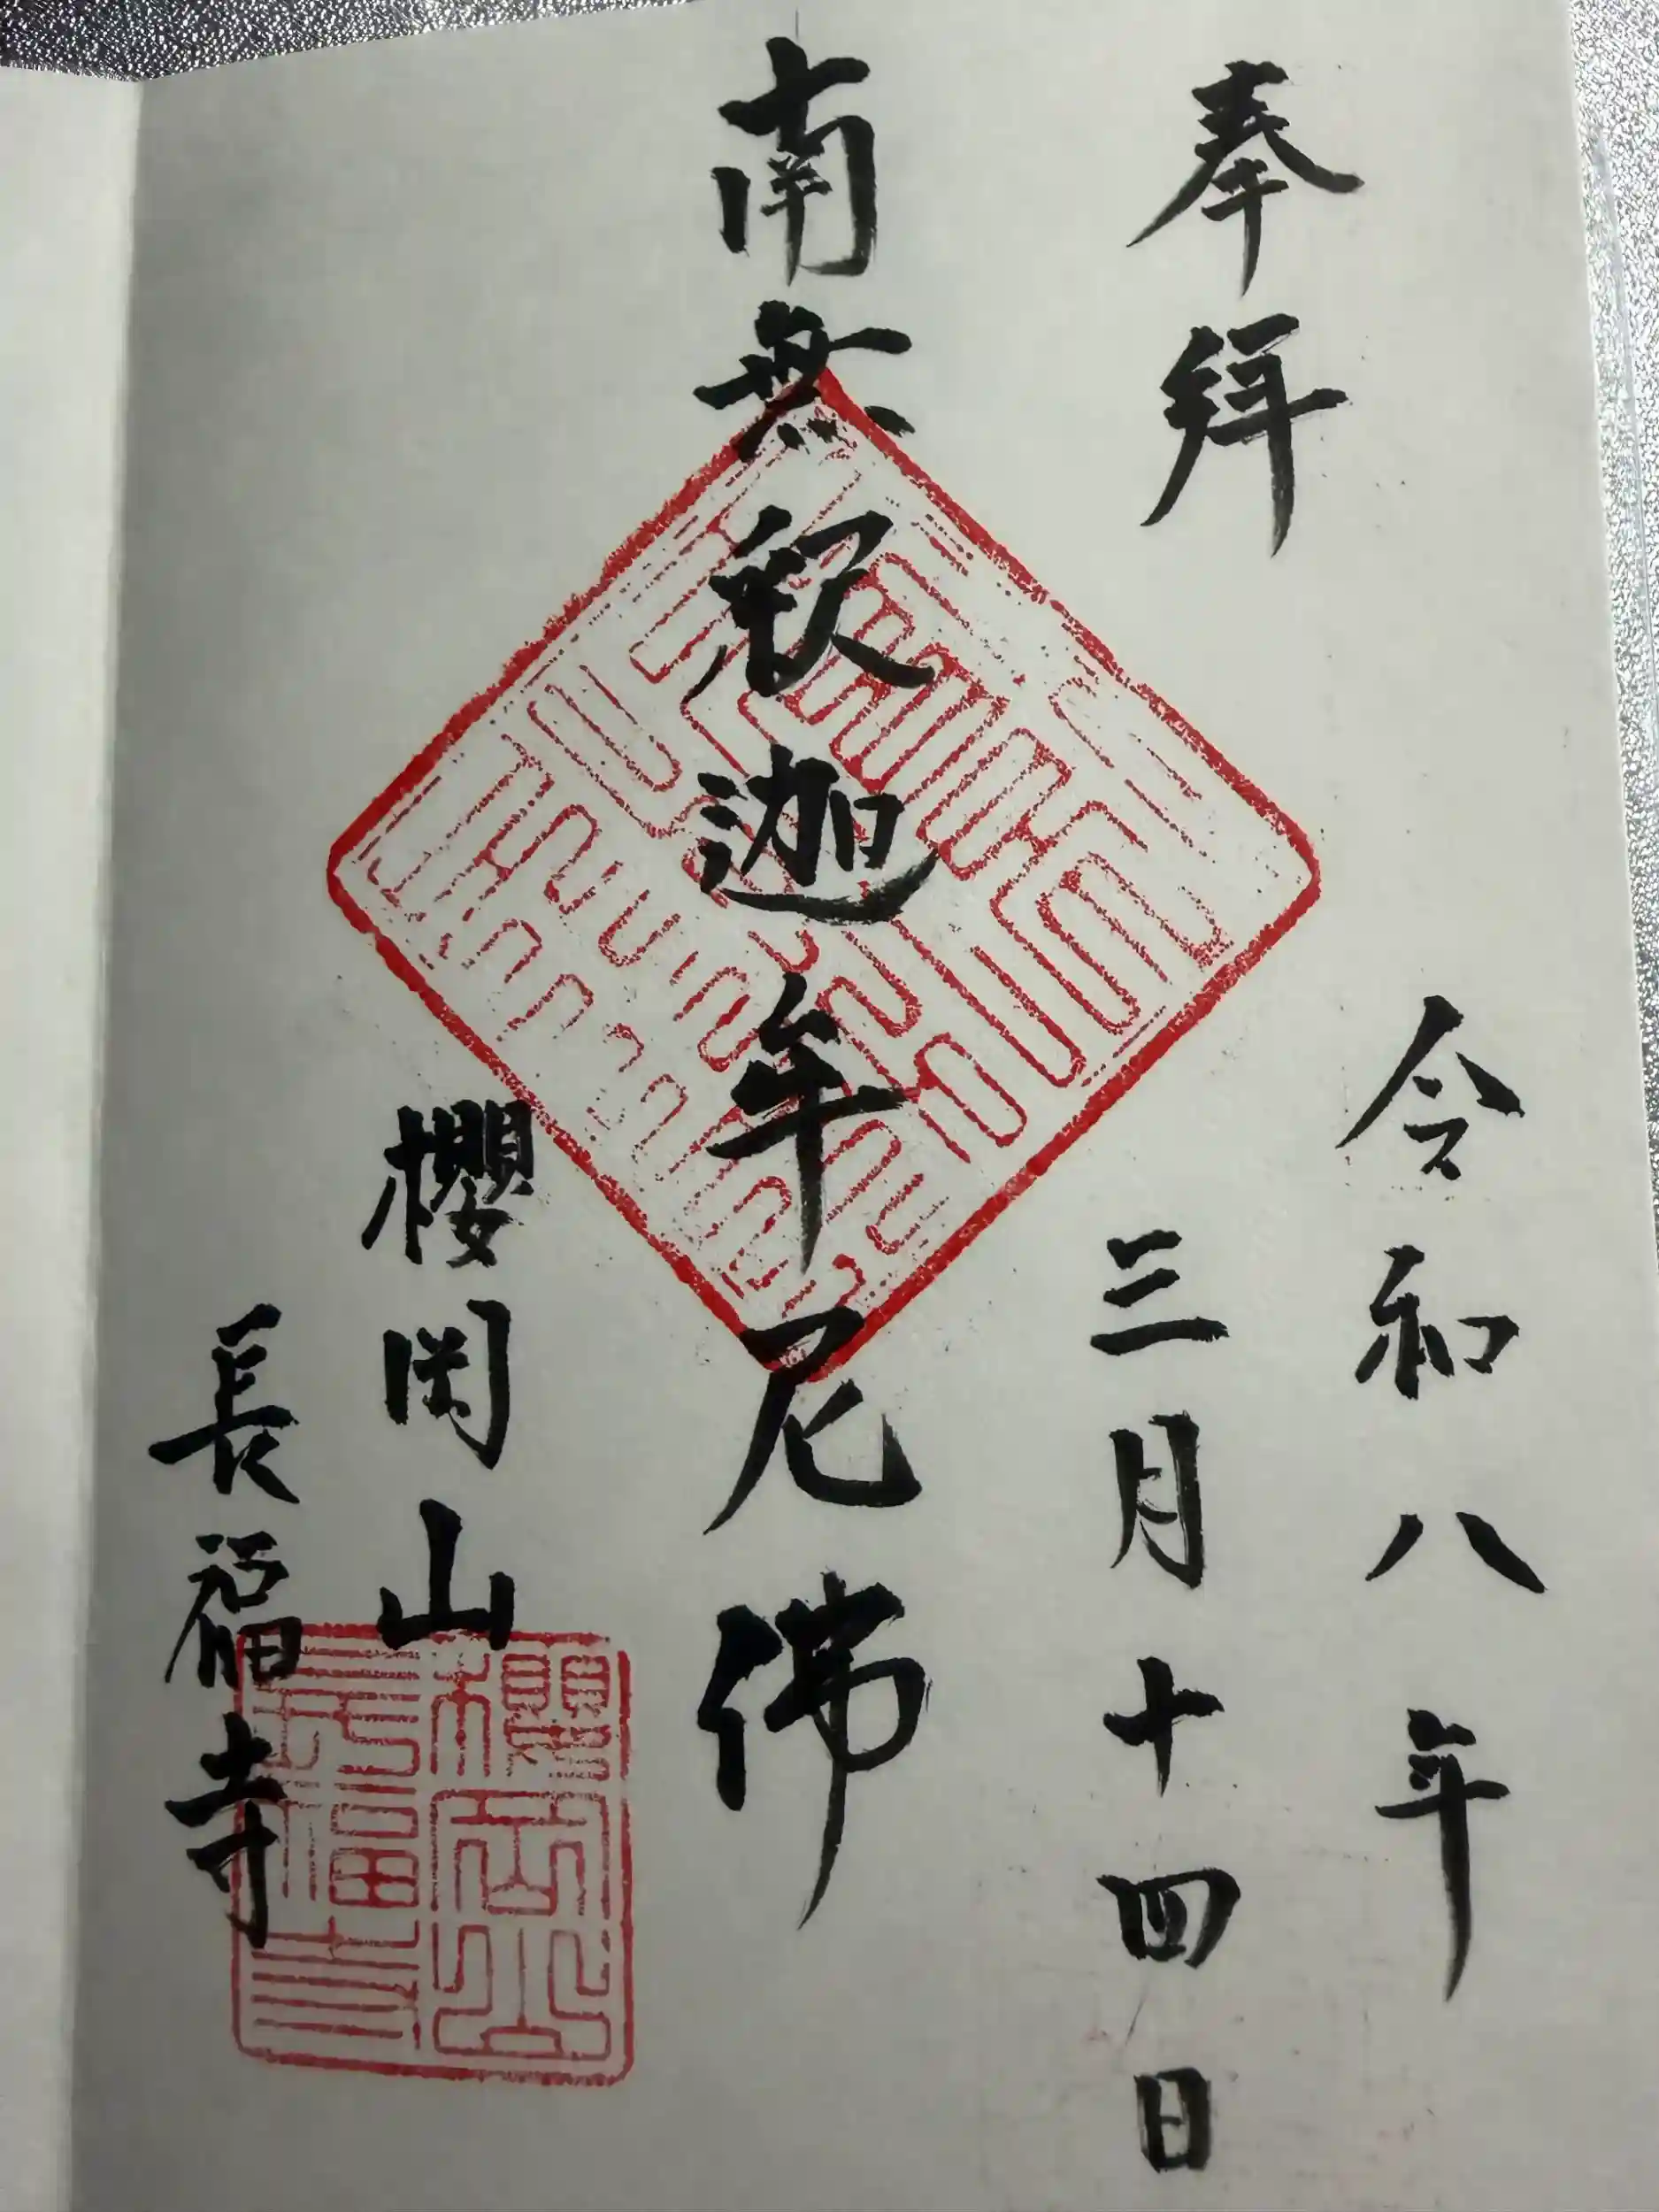 奉拜
令和八年
三月十四日
南無釈迦牟尼佛
櫻岡山
長福寺
櫻岡山
長福寺